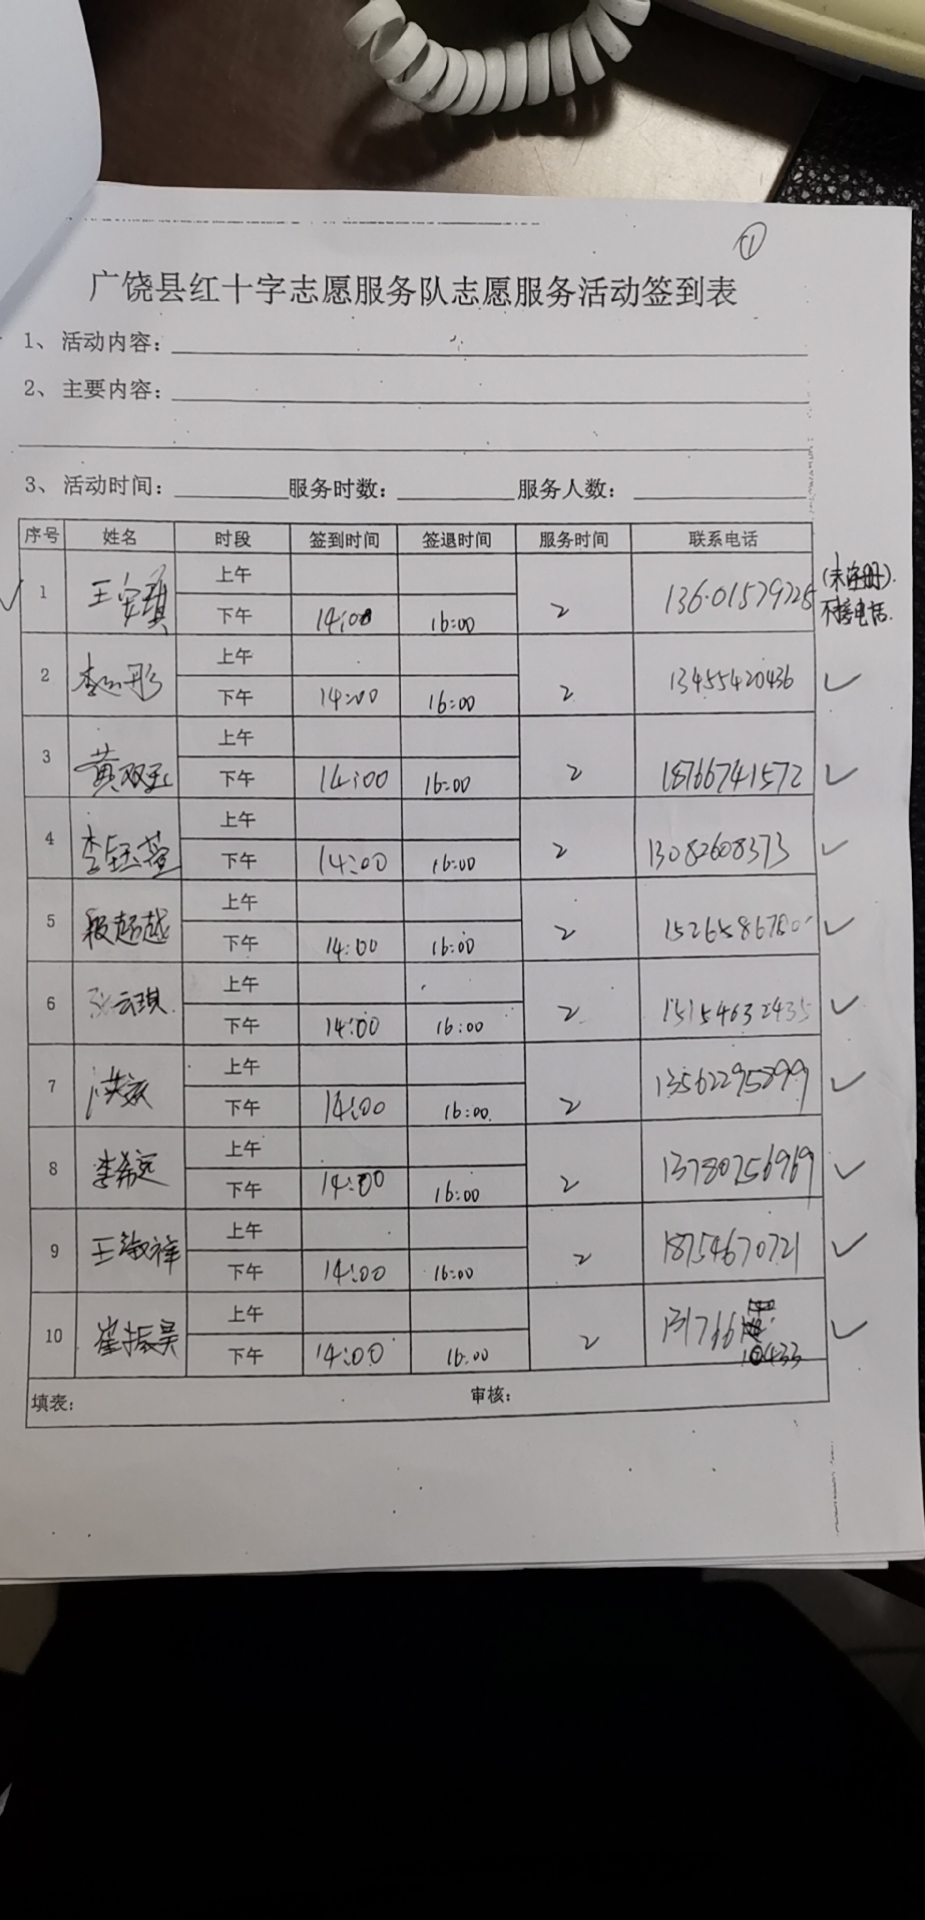 ①
广饶县红十字志愿服务队志愿服务活动签到表
1、活动内容：
2、主要内容：
3、活动时间： 服务时数： 服务人数：
序号 姓名 时段 签到时间 签退时间 服务时间 联系电话
上午
1 王安琪 下午 14:00 16:00 2 13601579226 (未注册).
不接电话.
上午
2 下午 14:00 16:00 2 13455420436 ✓
上午
3 黄双玉 下午 14:00 16:00 2 18766741572 ✓
上午
4 李钰萱 下午 14:00 16:00 2 13082608373 ✓
上午
5 段超越 下午 14:00 16:00 2 ✓
上午
6 张云琪 下午 14:00 16:00 2 15154632435 ✓
上午
7 下午 14:00 16:00 2 13562295899 ✓
上午
8 李希远 下午 14:00 16:00 2 13780756969 ✓
上午
9 王敬祥 下午 14:00 16:00 2 18754670721 ✓
上午
10 崔振昊 下午 14:00 16:00 2 ✓
填表： 审核：